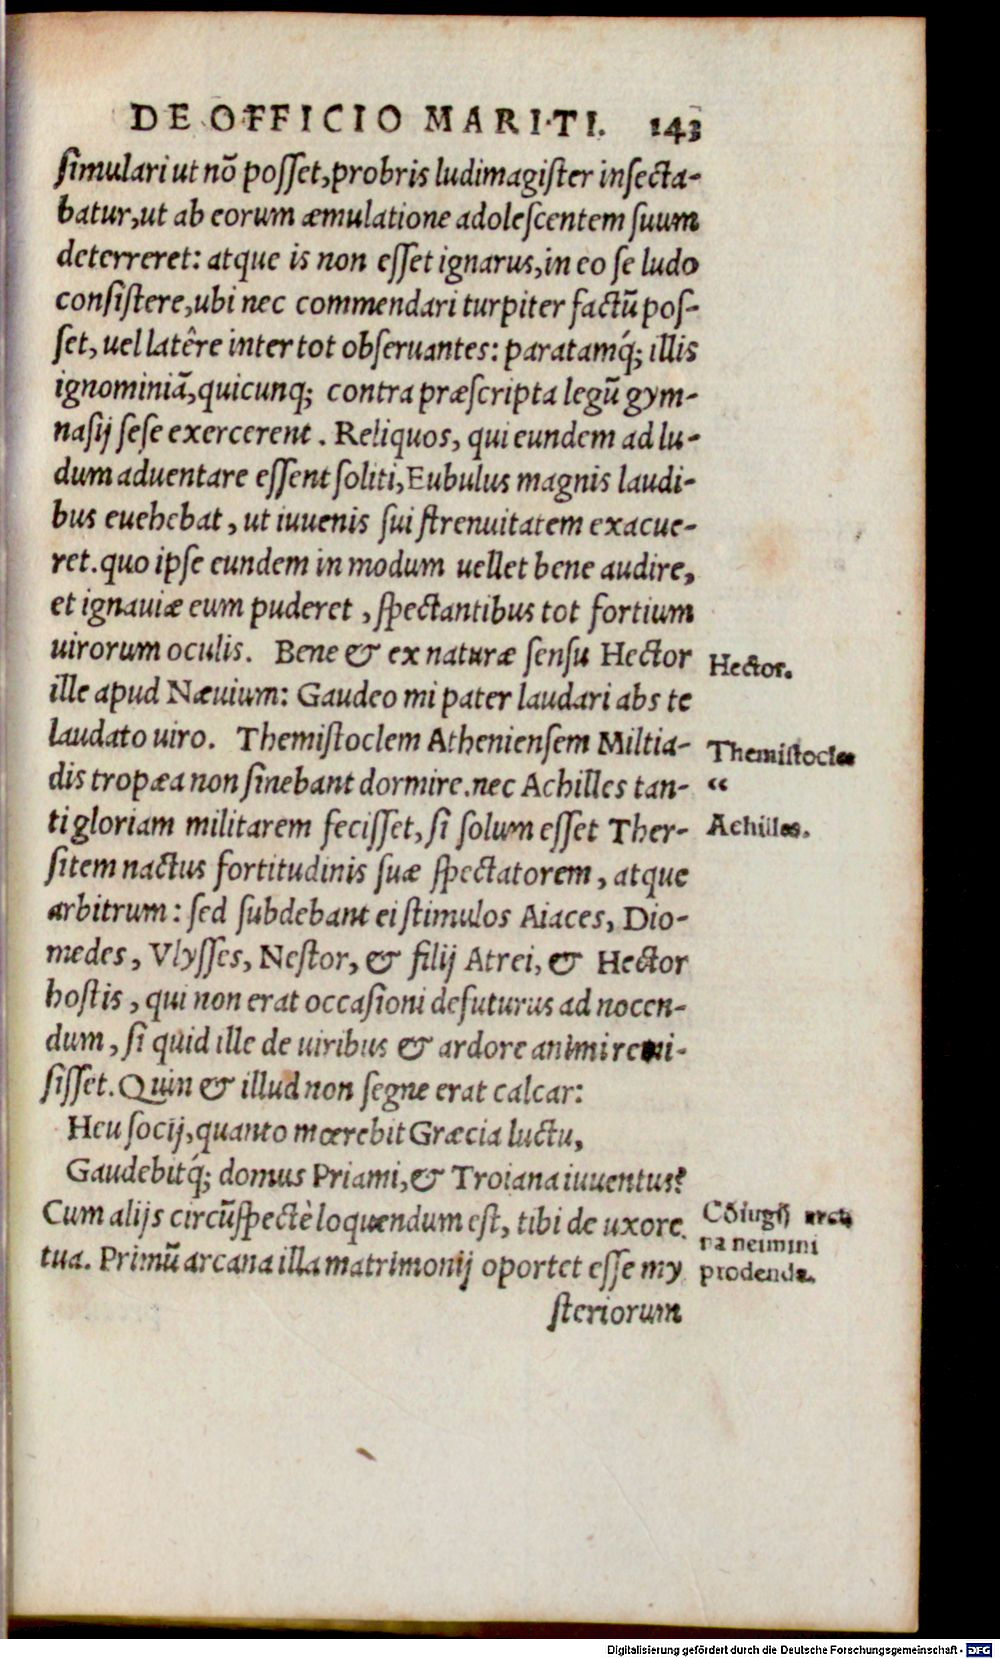 DE OFFICIO MARITI. 143
ſimulari ut nō poſſet, probris ludimagiſter inſecta-
batur, ut ab eorum æmulatione adoleſcentem ſuum
deterreret: atque is non eſſet ignarus, in eo ſe ludo
conſiſtere, ubi nec commendari turpiter factū poſ-
ſet, uel latêre inter tot obſeruantes: paratamq́; illis
ignominiā, quicunq; contra præſcripta legū gym-
naſij ſeſe exercerent. Reliquos, qui eundem ad lu-
dum aduentare eſſent ſoliti, Eubulus magnis laudi-
bus euehebat, ut iuuenis ſui ſtrenuitatem exacue-
ret. quo ipſe eundem in modum uellet bene audire,
et ignauiæ eum puderet, ſpectantibus tot fortium
uirorum oculis. Bene & ex naturæ ſenſu Hector
Hector.
ille apud Næuium: Gaudeo mi pater laudari abs te
laudato uiro. Themiſtoclem Athenienſem Miltia-
Themiſtocles
dis tropæa non ſinebant dormire. nec Achilles tan-
“
ti gloriam militarem feciſſet, ſi ſolum eſſet Ther-
Achilles.
ſitem nactus fortitudinis ſuæ ſpectatorem, atque
arbitrum: ſed ſubdebant ei ſtimulos Aiaces, Dio-
medes, Vlyſſes, Neſtor, & filij Atrei, & Hector
hoſtis, qui non erat occaſioni defuturus ad nocen-
dum, ſi quid ille de uiribus & ardore animi remi-
ſiſſet. Quin & illud non ſegne erat calcar:
Heu ſocij, quanto mœrebit Græcia luctu,
Gaudebitq́; domus Priami, & Troiana iuuentus?
Cum alijs circūſpectè loquendum eſt, tibi de uxore
Cōiugij arca
na nemini
tua. Primū arcana illa matrimonij oportet eſſe my
prodenda.
ſteriorum
Digitalisierung gefördert durch die Deutsche Forschungsgemeinschaft - DFG